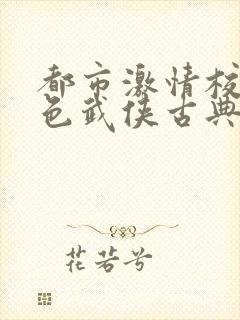 都市激情校
色武侠古典
花若兮